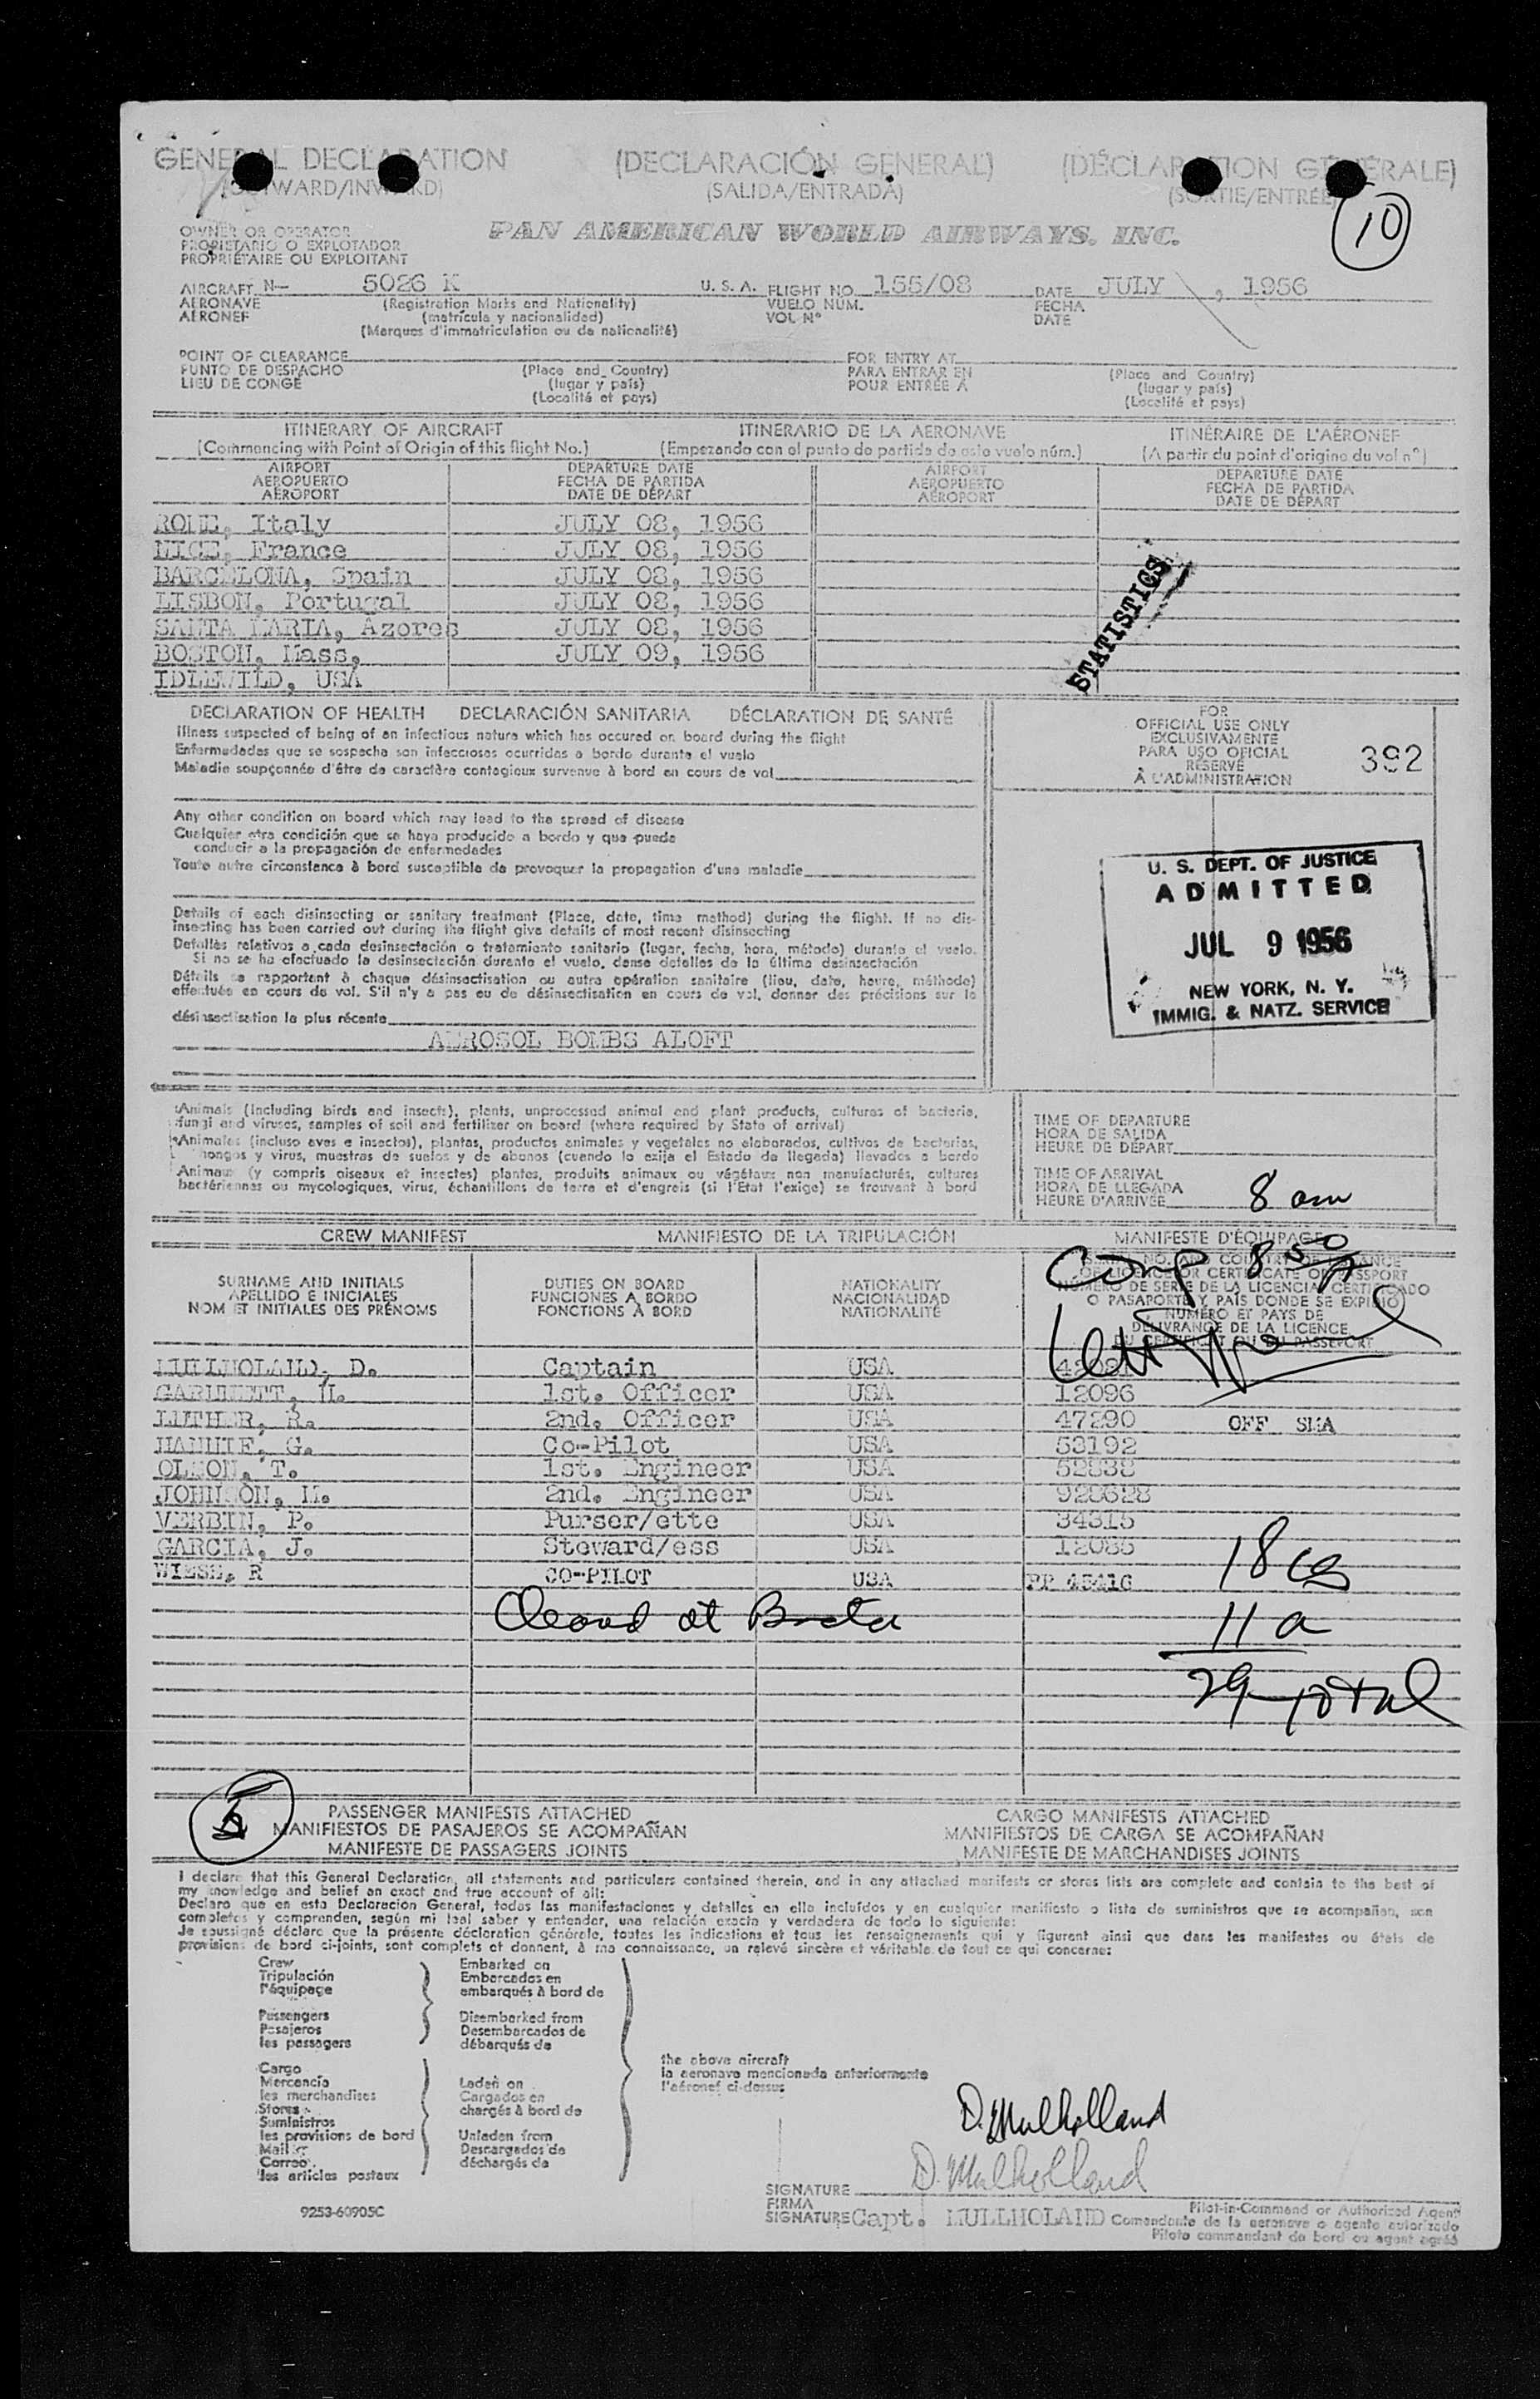 GENERAL DECLARATION (DECLARACIÓN GENERAL) (DÉCLARATION GÉNÉRALE)
(OUTWARD/INWARD) (SALIDA/ENTRADA) (SORTIE/ENTRÉE)
10
OWNER OR OPERATOR
PROPIETARIO O EXPLOTADOR
PROPRIÉTAIRE OU EXPLOITANT
PAN AMERICAN WORLD AIRWAYS, INC.
AIRCRAFT N— 5026 K U. S. A. FLIGHT NO. 155/08 DATE JULY , 1956
AERONAVE (Registration Marks and Nationality) VUELO NÚM. FECHA
AÉRONEF (matrícula y nacionalidad) VOL Nº DATE
(Marques d'immatriculation ou de nationalité)
POINT OF CLEARANCE FOR ENTRY AT
PUNTO DE DESPACHO (Place and Country) PARA ENTRAR EN (Place and Country)
LIEU DE CONGÉ (lugar y país) POUR ENTRÉE A (lugar y país)
(Localité et pays) (Localité et pays)
ITINERARY OF AIRCRAFT ITINERARIO DE LA AERONAVE ITINÉRAIRE DE L'AÉRONEF
(Commencing with Point of Origin of this flight No.) (Empezando con el punto de partida de este vuelo núm.) (A partir du point d'origine du vol nº)
AIRPORT DEPARTURE DATE AIRPORT DEPARTURE DATE
AEROPUERTO FECHA DE PARTIDA AEROPUERTO FECHA DE PARTIDA
AÉROPORT DATE DE DÉPART AÉROPORT DATE DE DÉPART
ROME, Italy JULY 08, 1956
NICE, France JULY 08, 1956
BARCELONA, Spain JULY 08, 1956
LISBON, Portugal JULY 08, 1956
SANTA MARIA, Azores JULY 08, 1956
BOSTON, Mass, JULY 09, 1956
IDLEWILD, USA
STATISTICS
DECLARATION OF HEALTH DECLARACIÓN SANITARIA DÉCLARATION DE SANTÉ
Illness suspected of being of an infectious nature which has occured on board during the flight
Enfermedades que se sospecha son infecciosas ocurridas a bordo durante el vuelo
Maladie soupçonnée d'être de caractère contagieux survenue à bord en cours de vol
FOR
OFFICIAL USE ONLY
EXCLUSIVAMENTE
PARA USO OFICIAL
RÉSERVÉ
À L'ADMINISTRATION
392
Any other condition on board which may lead to the spread of disease
Cualquier otra condición que se haya producido a bordo y que pueda
conducir a la propagación de enfermedades
Toute autre circonstance à bord susceptible de provoquer la propagation d'une maladie
U. S. DEPT. OF JUSTICE
ADMITTED
JUL 9 1956
NEW YORK, N. Y.
IMMIG. & NATZ. SERVICE
Details of each disinsecting or sanitary treatment (Place, date, time method) during the flight. If no dis-
insecting has been carried out during the flight give details of most recent disinsecting
Detalles relativos a cada desinsectación o tratamiento sanitario (lugar, fecha, hora, método) durante el vuelo.
Si no se ha efectuado la desinsectación durante el vuelo, dense detalles de la última desinsectación
Détails se rapportant à chaque désinsectisation ou autre opération sanitaire (lieu, date, heure, méthode)
effectuée en cours de vol. S'il n'y a pas eu de désinsectisation en cours de vol, donner des précisions sur la
désinsectisation la plus récente
AEROSOL BOMBS ALOFT
Animals (including birds and insects), plants, unprocessed animal and plant products, cultures of bacteria,
fungi and viruses, samples of soil and fertilizer on board (where required by State of arrival)
Animales (incluso aves e insectos), plantas, productos animales y vegetales no elaborados, cultivos de bacterias,
hongos y virus, muestras de suelos y de abonos (cuando lo exija el Estado de llegada) llevados a bordo
Animaux (y compris oiseaux et insectes) plantes, produits animaux ou végétaux non manufacturés, cultures
bactériennes ou mycologiques, virus, échantillons de terre et d'engrais (si l'État l'exige) se trouvant à bord
TIME OF DEPARTURE
HORA DE SALIDA
HEURE DE DÉPART
TIME OF ARRIVAL
HORA DE LLEGADA
HEURE D'ARRIVÉE 8 am
CREW MANIFEST MANIFIESTO DE LA TRIPULACIÓN MANIFESTE D'ÉQUIPAGE
Comp 8 50 A
SURNAME AND INITIALS DUTIES ON BOARD NATIONALITY
APELLIDO E INICIALES FUNCIONES A BORDO NACIONALIDAD
NOM ET INITIALES DES PRÉNOMS FONCTIONS À BORD NATIONALITÉ
OF LICENCE OR CERTIFICATE OR PASSPORT
NÚMERO DE SERIE DE LA LICENCIA, CERTIFICADO
O PASAPORTE Y PAÍS DONDE SE EXPIDIÓ
NUMÉRO ET PAYS DE
DÉLIVRANCE DE LA LICENCE
DU CERTIFICAT OU DU PASSEPORT
MULLHOLAND, D. Captain USA
GARNNETT, H. 1st. Officer USA 12096
LUTHER, R. 2nd. Officer USA 47290 OFF SMA
MANHTE, G. Co-Pilot USA 53192
OLSON, T. 1st. Engineer USA 52838
JOHNSON, H. 2nd. Engineer USA 928628
VERBIN, P. Purser/ette USA 34315
GARCIA, J. Steward/ess USA 12085
WIESE, R CO-PILOT USA PP 45416
18 cg
at
11 a
29 total
5
PASSENGER MANIFESTS ATTACHED CARGO MANIFESTS ATTACHED
MANIFIESTOS DE PASAJEROS SE ACOMPAÑAN MANIFIESTOS DE CARGA SE ACOMPAÑAN
MANIFESTE DE PASSAGERS JOINTS MANIFESTE DE MARCHANDISES JOINTS
I declare that this General Declaration, all statements and particulars contained therein, and in any attached manifests or stores lists are complete and contain to the best of
my knowledge and belief an exact and true account of all:
Declaro que en esta Declaracion General, todas las manifestaciones y detalles en ella incluídos y en cualquier manifiesto o lista de suministros que se acompañan, son
completos y comprenden, según mi leal saber y entender, una relación exacta y verdadera de todo lo siguiente:
Je soussigné déclare que la présente déclaration générale, toutes les indications et tous les renseignements qui y figurent ainsi que dans les manifestes ou états de
provisions de bord ci-joints, sont complets et donnent, à ma connaissance, un relevé sincère et véritable de tout ce qui concerne:
Crew Embarked on
Tripulación Embarcados en
l'équipage embarqués à bord de
Passengers Disembarked from
Pasajeros Desembarcados de
les passagers débarqués de
the above aircraft
la aeronave mencionada anteriormente
l'aéronef ci-dessus
Cargo
Mercancía Laden on
les marchandises Cargados en
Stores chargés à bord de
Suministros
les provisions de bord Unladen from
Mail Descargados de
Correo déchargés de
les articles postaux
D. Mulholland
D. Mulholland
SIGNATURE
FIRMA
SIGNATURE Capt. MULLHOLAND
Pilot-in-Command or Authorized Agent
Comandante de la aeronave o agente autorizado
Pilote commandant de bord ou agent agréé
9253-60905C